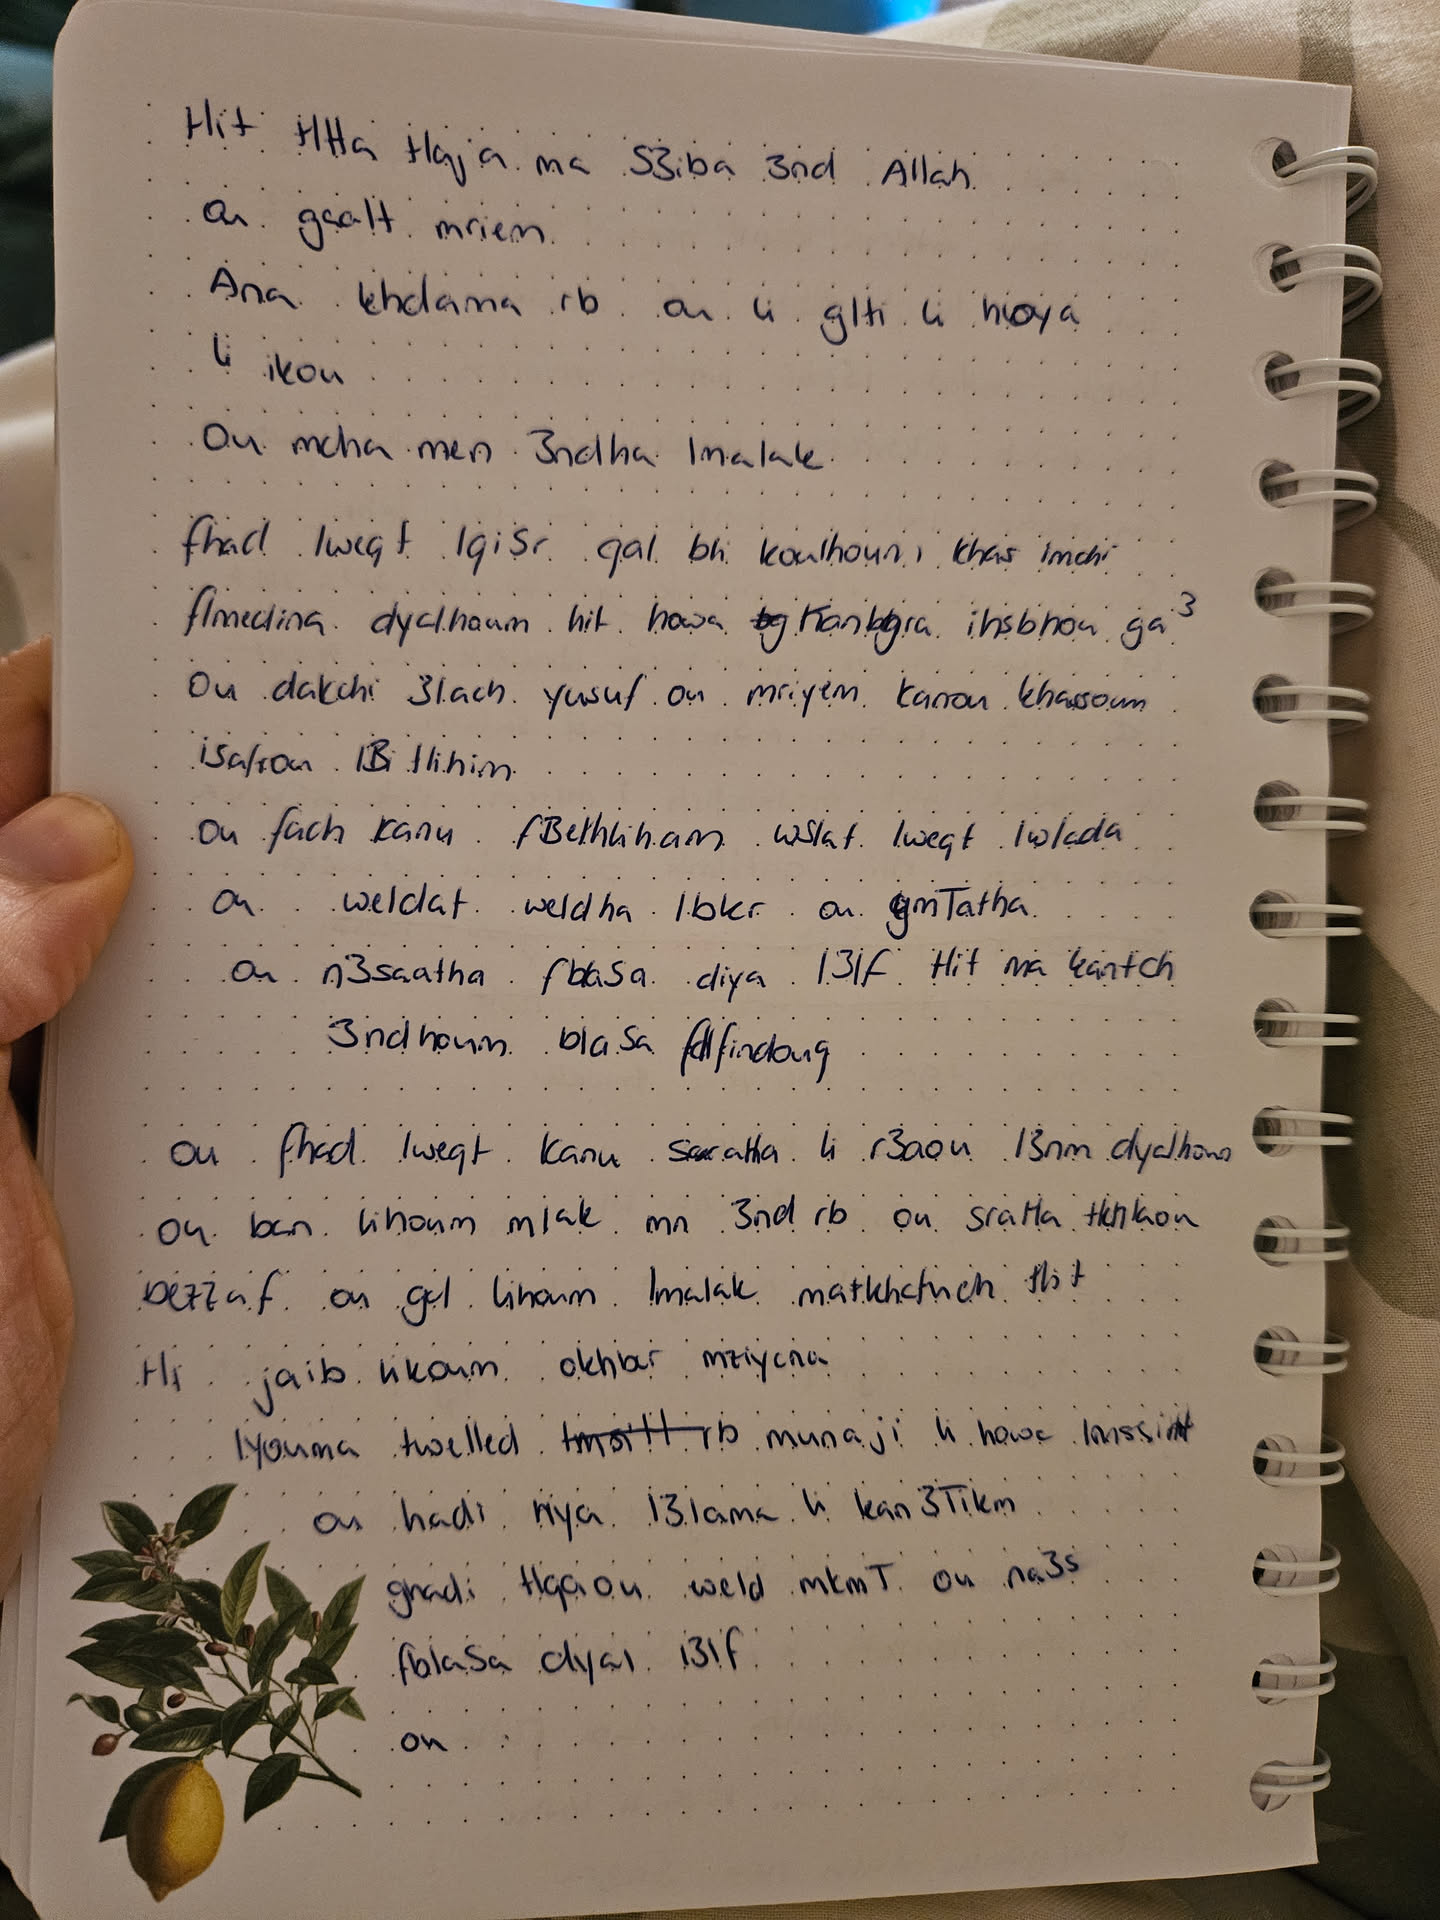 Hit HHa Haja ma S3iba 3nd Allah
ou gaalt mriem
Ana khdama rb ou li glti li howa
li ikou
Ou mcha men 3ndha lmalak
fhad lweqt lqiSr qal bli koulhoum khas imchi
flmedina dyalhoum hit howa Kanbgra ihsbhou ga3
Ou dakchi 3lach yusuf ou mriyem kanou khassoum
isafrou lBitlihim
ou fach kanu fBethliham wSlat lweqt lwlada
ou weldat weldha lbkr ou gmTatha
ou n3saatha fblaSa diya l3lf Hit ma kantch
3ndhoum blaSa flfindouq
ou fhad lweqt kanu saratha li r3aou l3nm dyalhoum
ou ban lihoum mlak mn 3nd rb ou sratta tkhlaou
bezzaf ou gal lihoum lmalak matkhafuch Hit
Hi jaib likoum okhbar mziyana
lyouma twelled rb munaji li howa lmssiH
ou hadi hiya l3lama li kan3Tikm
ghadi Hqaou weld mkmT ou na3s
fblaSa dyal l3lf
ou